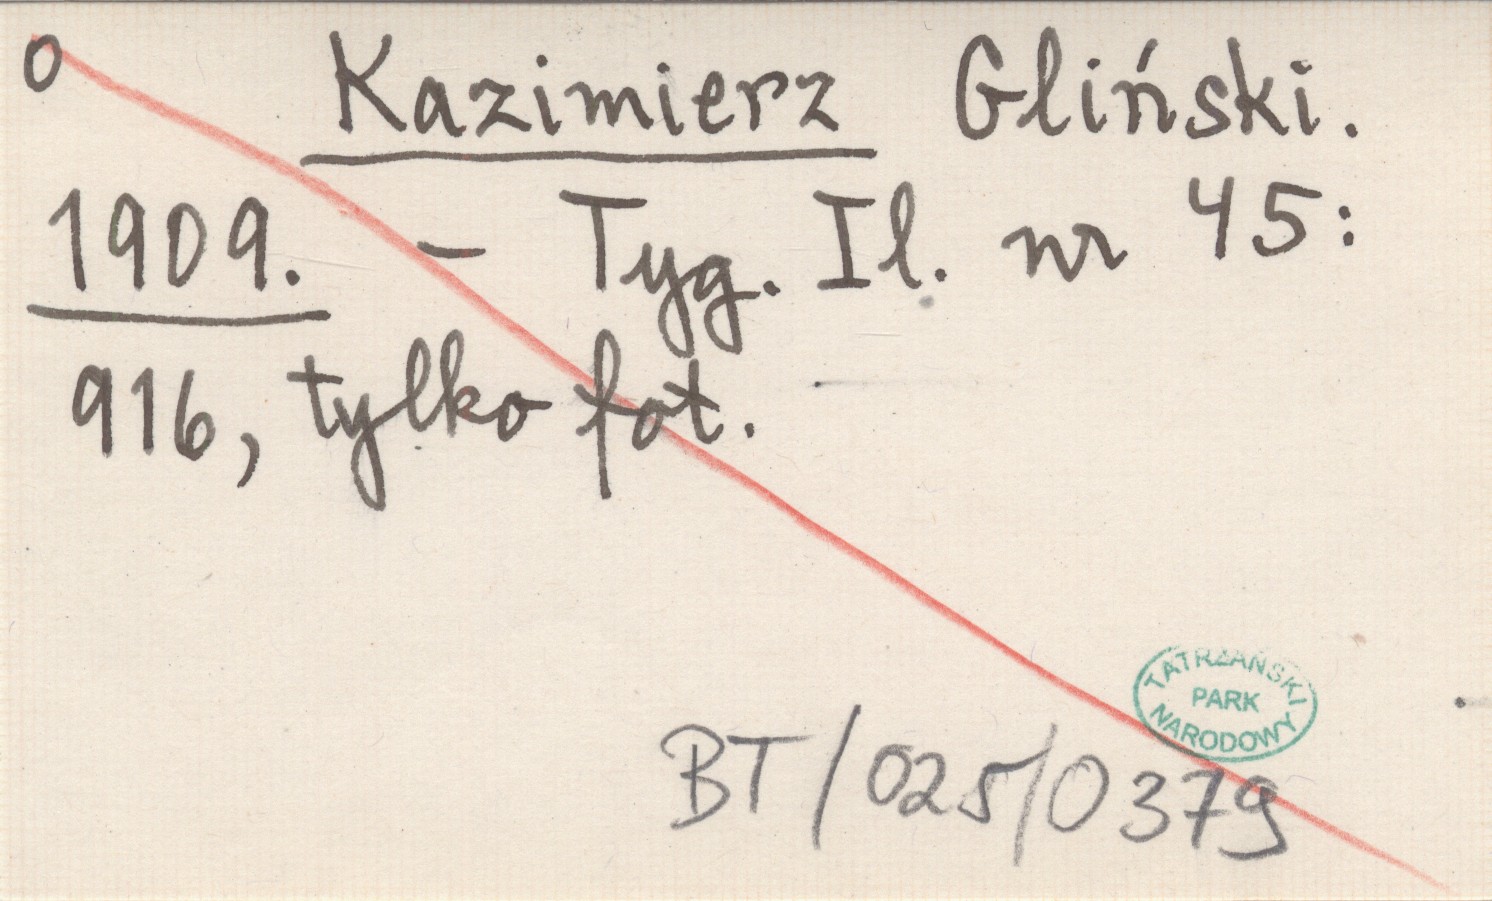 0 Kazimierz Gliński.
1909. – Tyg. Il. nr 45:
916, tylko fot.
TATRZAŃSKI
PARK
NARODOWY
BT/025/0379